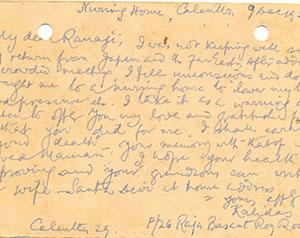 Nursing Home, Calcutta 9 Dec
My dear Ranaji, I was not keeping well
return from Japan and the Far East. After
crowded meeting I fell unconscious and
ught me to a nursing home to lower my
pressure etc. I take it as a warning
to offer you my love and gratitude for
that you did for me. I shall
your death. Your memory with that of
I hope your health
proving and your grandsons can
wife – Santa Devi at home address
Yours
Kalidas
Calcutta 29. P/26 Raja Basant Roy Road